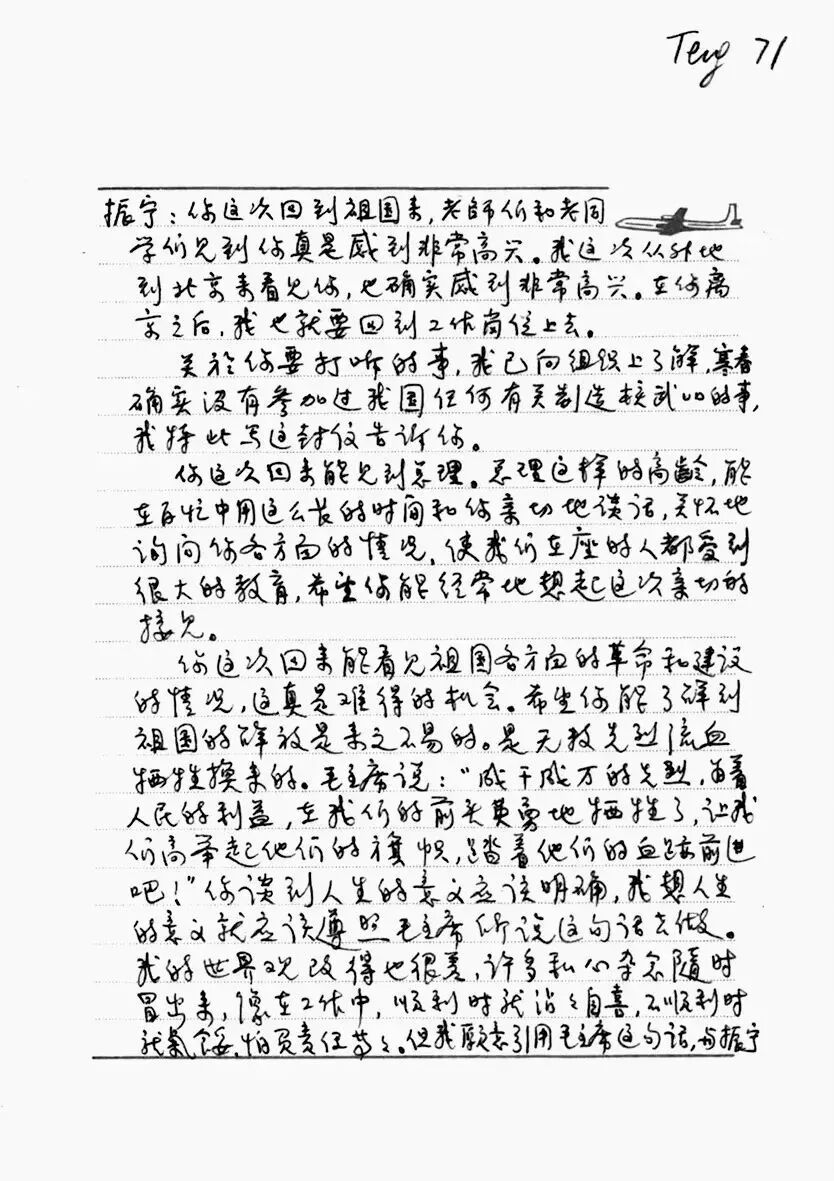 Teng 71
振宁：你这次回到祖国来，老师们和老同
学们见到你真是感到非常高兴。我这次从外地
到北京来看见你，也确实感到非常高兴。在你离
京之后，我也就要回到工作岗位上去。
关於你要打听的事，我已向组织上了解，寒春
确实没有参加过我国任何有关制造核武口的事，
我特此写这封信告诉你。
你这次回来能见到总理。总理这样的高龄，能
在百忙中用这么长的时间和你亲切地谈话，关怀地
询问你各方面的情况，使我们在座的人都受到
很大的教育，希望你能经常地想起这次亲切的
接见。
你这次回来能看见祖国各方面的革命和建设
的情况，这真是难得的机会。希望你能了解到
祖国的解放是来之不易的。是无数先烈流血
牺牲换来的。毛主席说：“成千成万的先烈，为着
人民的利益，在我们的前头英勇地牺牲了，让我
们高举起他们的旗帜，踏着他们的血迹前进
吧！”你谈到人生的意义应该明确，我想人生
的意义就应该遵照毛主席所说这句话去做。
我的世界观改得也很差，许多私心杂念随时
冒出来，像在工作中，顺利时就沾沾自喜，不顺利时
就气馁，怕负责任等等。但我愿意引用毛主席这句话，与振宁